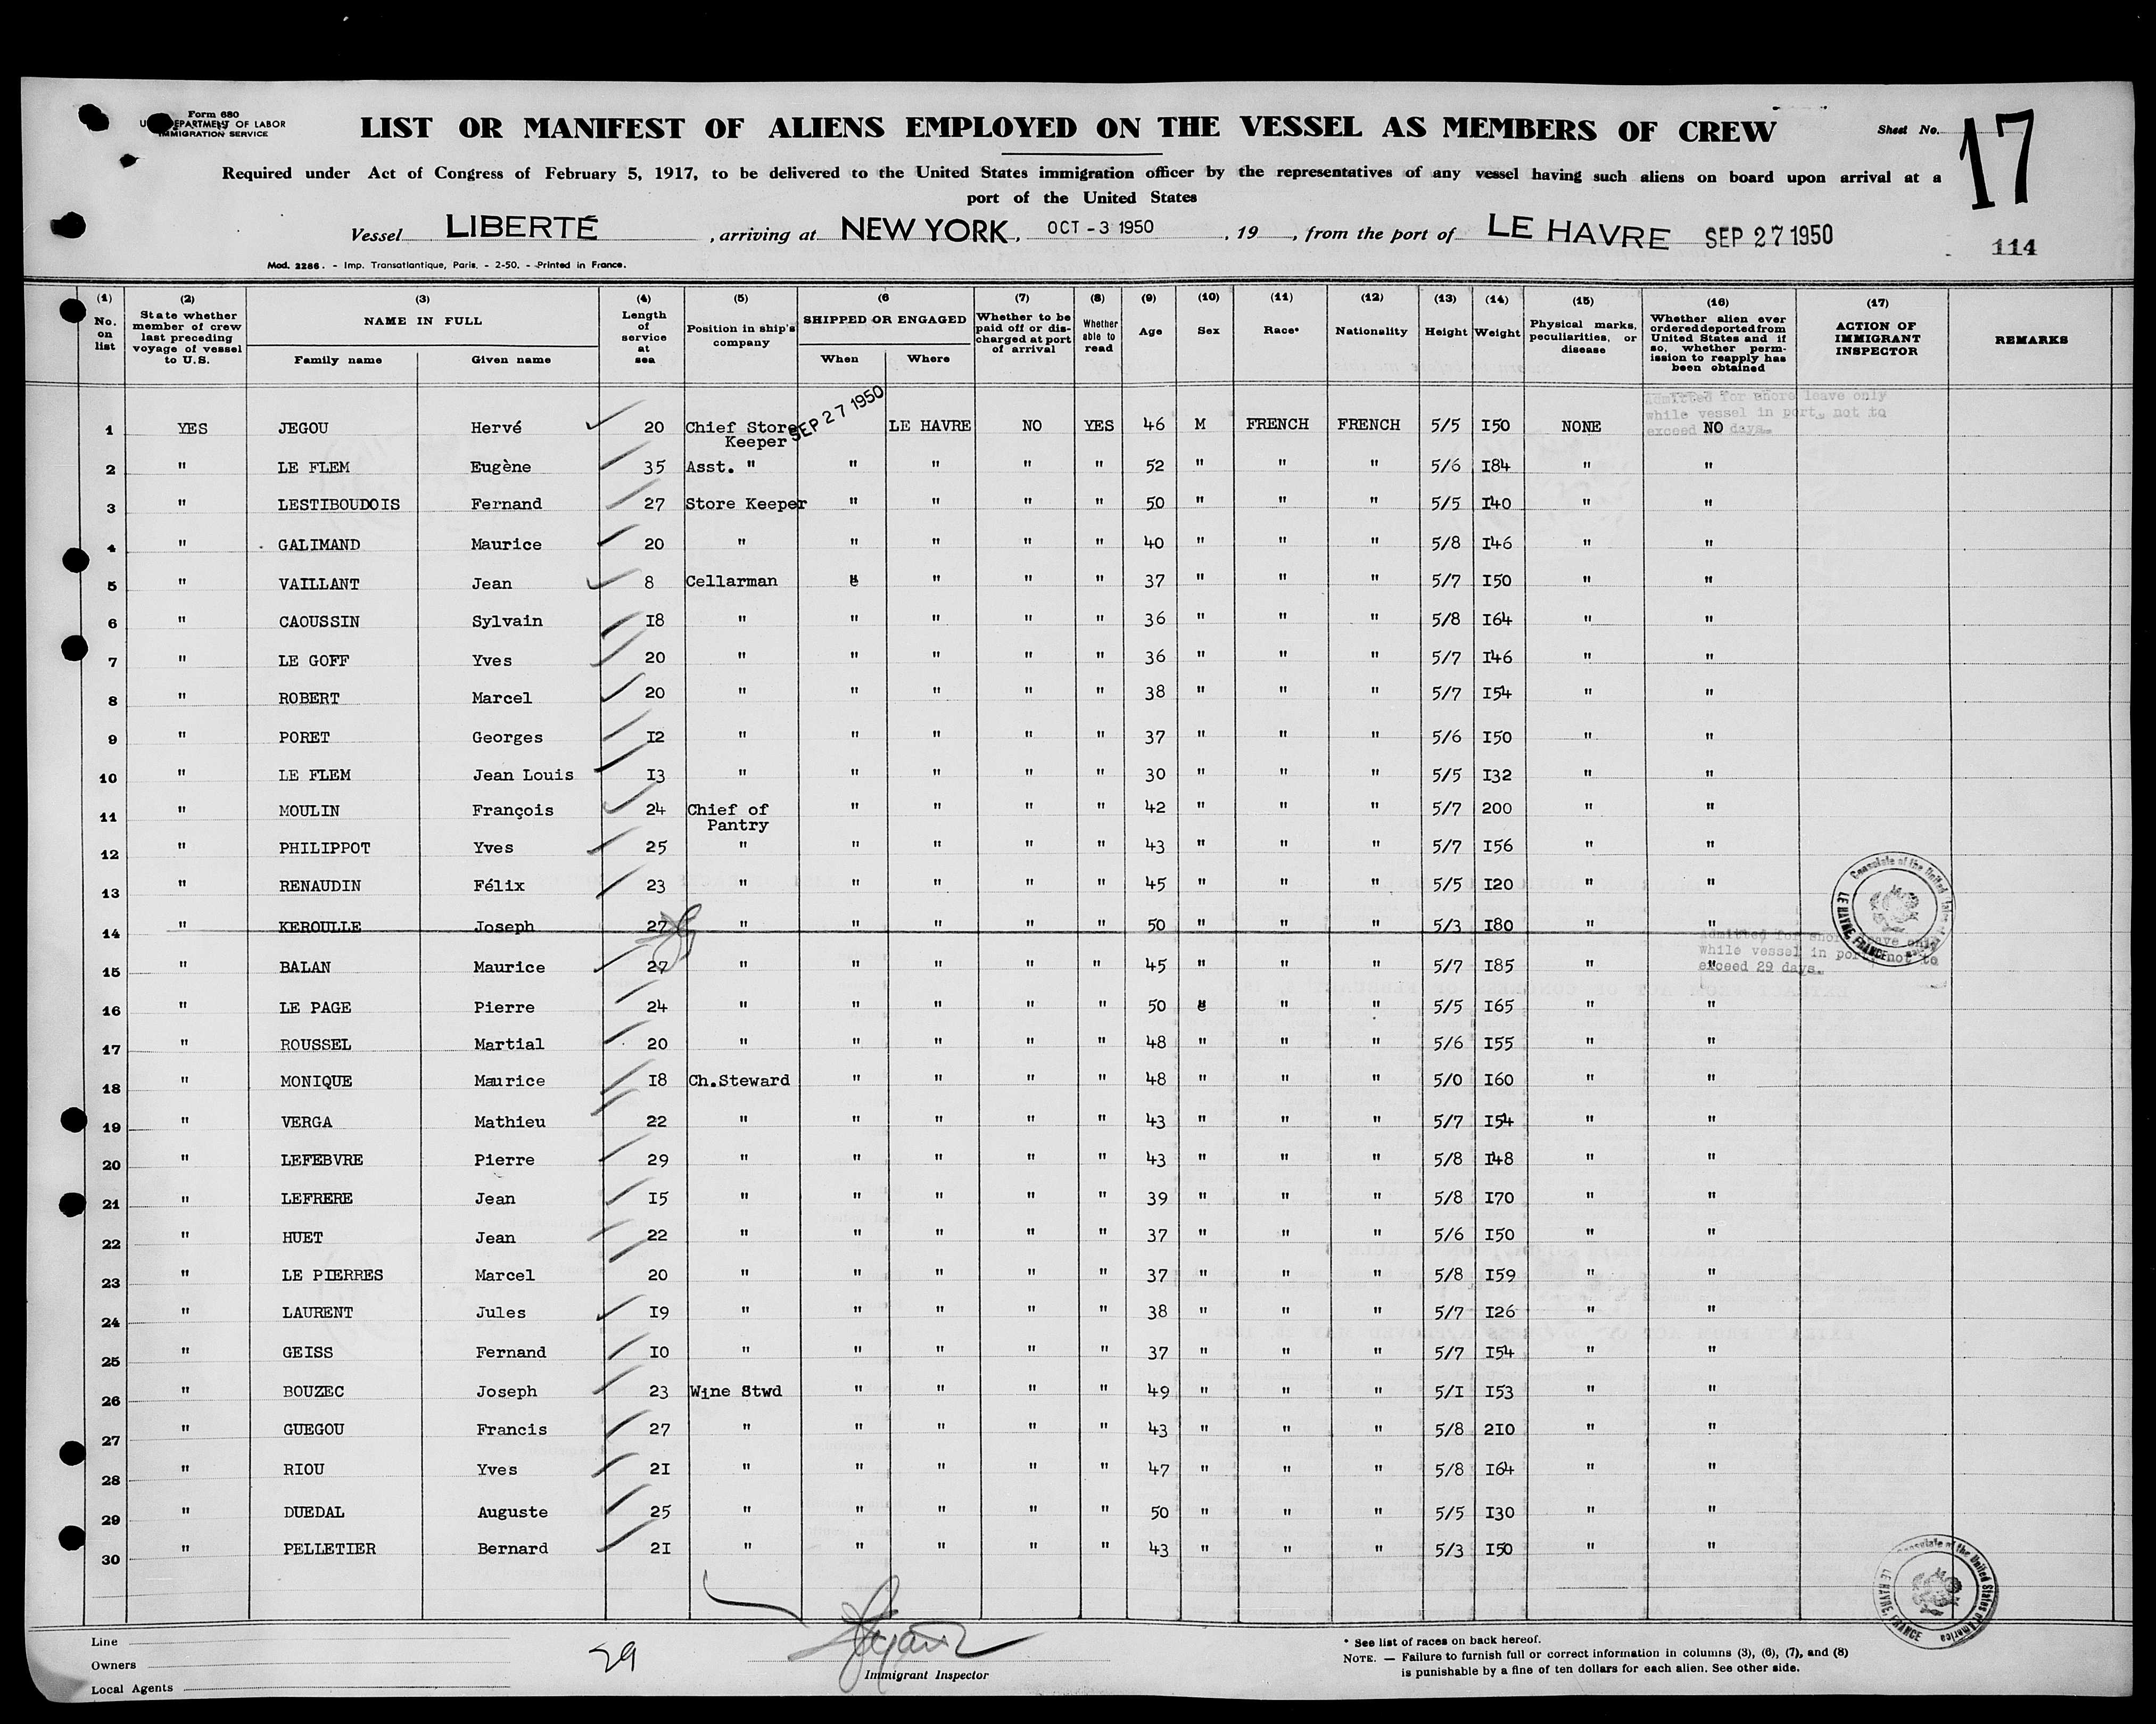 Form 680
U. S. DEPARTMENT OF LABOR
IMMIGRATION SERVICE
LIST OR MANIFEST OF ALIENS EMPLOYED ON THE VESSEL AS MEMBERS OF CREW
Sheet No. 17
Required under Act of Congress of February 5, 1917, to be delivered to the United States immigration officer by the representatives of any vessel having such aliens on board upon arrival at a
port of the United States
Vessel LIBERTÉ , arriving at NEW YORK, OCT -3 1950 , 19 , from the port of LE HAVRE SEP 27 1950
114
Mod. 2286. - Imp. Transatlantique, Paris. - 2-50. - Printed in France.
(1) No. on list (2) State whether member of crew last preceding voyage of vessel to U.S. (3) NAME IN FULL Family name Given name (4) Length of service at sea (5) Position in ship's company (6 SHIPPED OR ENGAGED When Where (7) Whether to be paid off or discharged at port of arrival (8) Whether able to read (9) Age (10) Sex (11) Race* (12) Nationality (13) Height (14) Weight (15) Physical marks, peculiarities, or disease (16) Whether alien ever ordered deported from United States and if so, whether permission to reapply has been obtained (17) ACTION OF IMMIGRANT INSPECTOR REMARKS
Admitted for shore leave only
while vessel in port, not to
exceed days.
1 YES JEGOU Hervé 20 Chief Store Keeper SEP 27 1950 LE HAVRE NO YES 46 M FRENCH FRENCH 5/5 I50 NONE NO
2 " LE FLEM Eugène 35 Asst. " " " " " 52 " " " 5/6 I84 " "
3 " LESTIBOUDOIS Fernand 27 Store Keeper " " " " 50 " " " 5/5 I40 " "
4 " GALIMAND Maurice 20 " " " " " 40 " " " 5/8 I46 " "
5 " VAILLANT Jean 8 Cellarman " " " " 37 " " " 5/7 I50 " "
6 " CAOUSSIN Sylvain I8 " " " " " 36 " " " 5/8 I64 " "
7 " LE GOFF Yves 20 " " " " " 36 " " " 5/7 I46 " "
8 " ROBERT Marcel 20 " " " " " 38 " " " 5/7 I54 " "
9 " PORET Georges I2 " " " " " 37 " " " 5/6 I50 " "
10 " LE FLEM Jean Louis I3 " " " " " 30 " " " 5/5 I32 " "
11 " MOULIN François 24 Chief of Pantry " " " " 42 " " " 5/7 200 " "
12 " PHILIPPOT Yves 25 " " " " " 43 " " " 5/7 I56 " "
13 " RENAUDIN Félix 23 " " " " " 45 " " " 5/5 I20 " "
14 " KEROULLE Joseph 27 " " " " " 50 " " " 5/3 I80 " "
15 " BALAN Maurice 27 " " " " " 45 " " " 5/7 I85 " "
Admitted for shore leave only
while vessel in port, not to
exceed 29 days.
16 " LE PAGE Pierre 24 " " " " " 50 " " " 5/5 I65 " "
17 " ROUSSEL Martial 20 " " " " " 48 " " " 5/6 I55 " "
18 " MONIQUE Maurice I8 Ch.Steward " " " " 48 " " " 5/0 I60 " "
19 " VERGA Mathieu 22 " " " " " 43 " " " 5/7 I54 " "
20 " LEFEBVRE Pierre 29 " " " " " 43 " " " 5/8 I48 " "
21 " LEFRERE Jean I5 " " " " " 39 " " " 5/8 I70 " "
22 " HUET Jean 22 " " " " " 37 " " " 5/6 I50 " "
23 " LE PIERRES Marcel 20 " " " " " 37 " " " 5/8 I59 " "
24 " LAURENT Jules I9 " " " " " 38 " " " 5/7 I26 " "
25 " GEISS Fernand I0 " " " " " 37 " " " 5/7 I54 " "
26 " BOUZEC Joseph 23 Wine Stwd " " " " 49 " " " 5/I I53 " "
27 " GUEGOU Francis 27 " " " " " 43 " " " 5/8 2I0 " "
28 " RIOU Yves 2I " " " " " 47 " " " 5/8 I64 " "
29 " DUEDAL Auguste 25 " " " " " 50 " " " 5/5 I30 " "
30 " PELLETIER Bernard 2I " " " " " 43 " " " 5/3 I50 " "
Consulate of the United States of America
LE HAVRE, FRANCE
Consulate of the United States of America
LE HAVRE, FRANCE
Line
Owners
Local Agents
29
Immigrant Inspector
* See list of races on back hereof.
NOTE. — Failure to furnish full or correct information in columns (3), (6), (7), and (8)
is punishable by a fine of ten dollars for each alien. See other side.